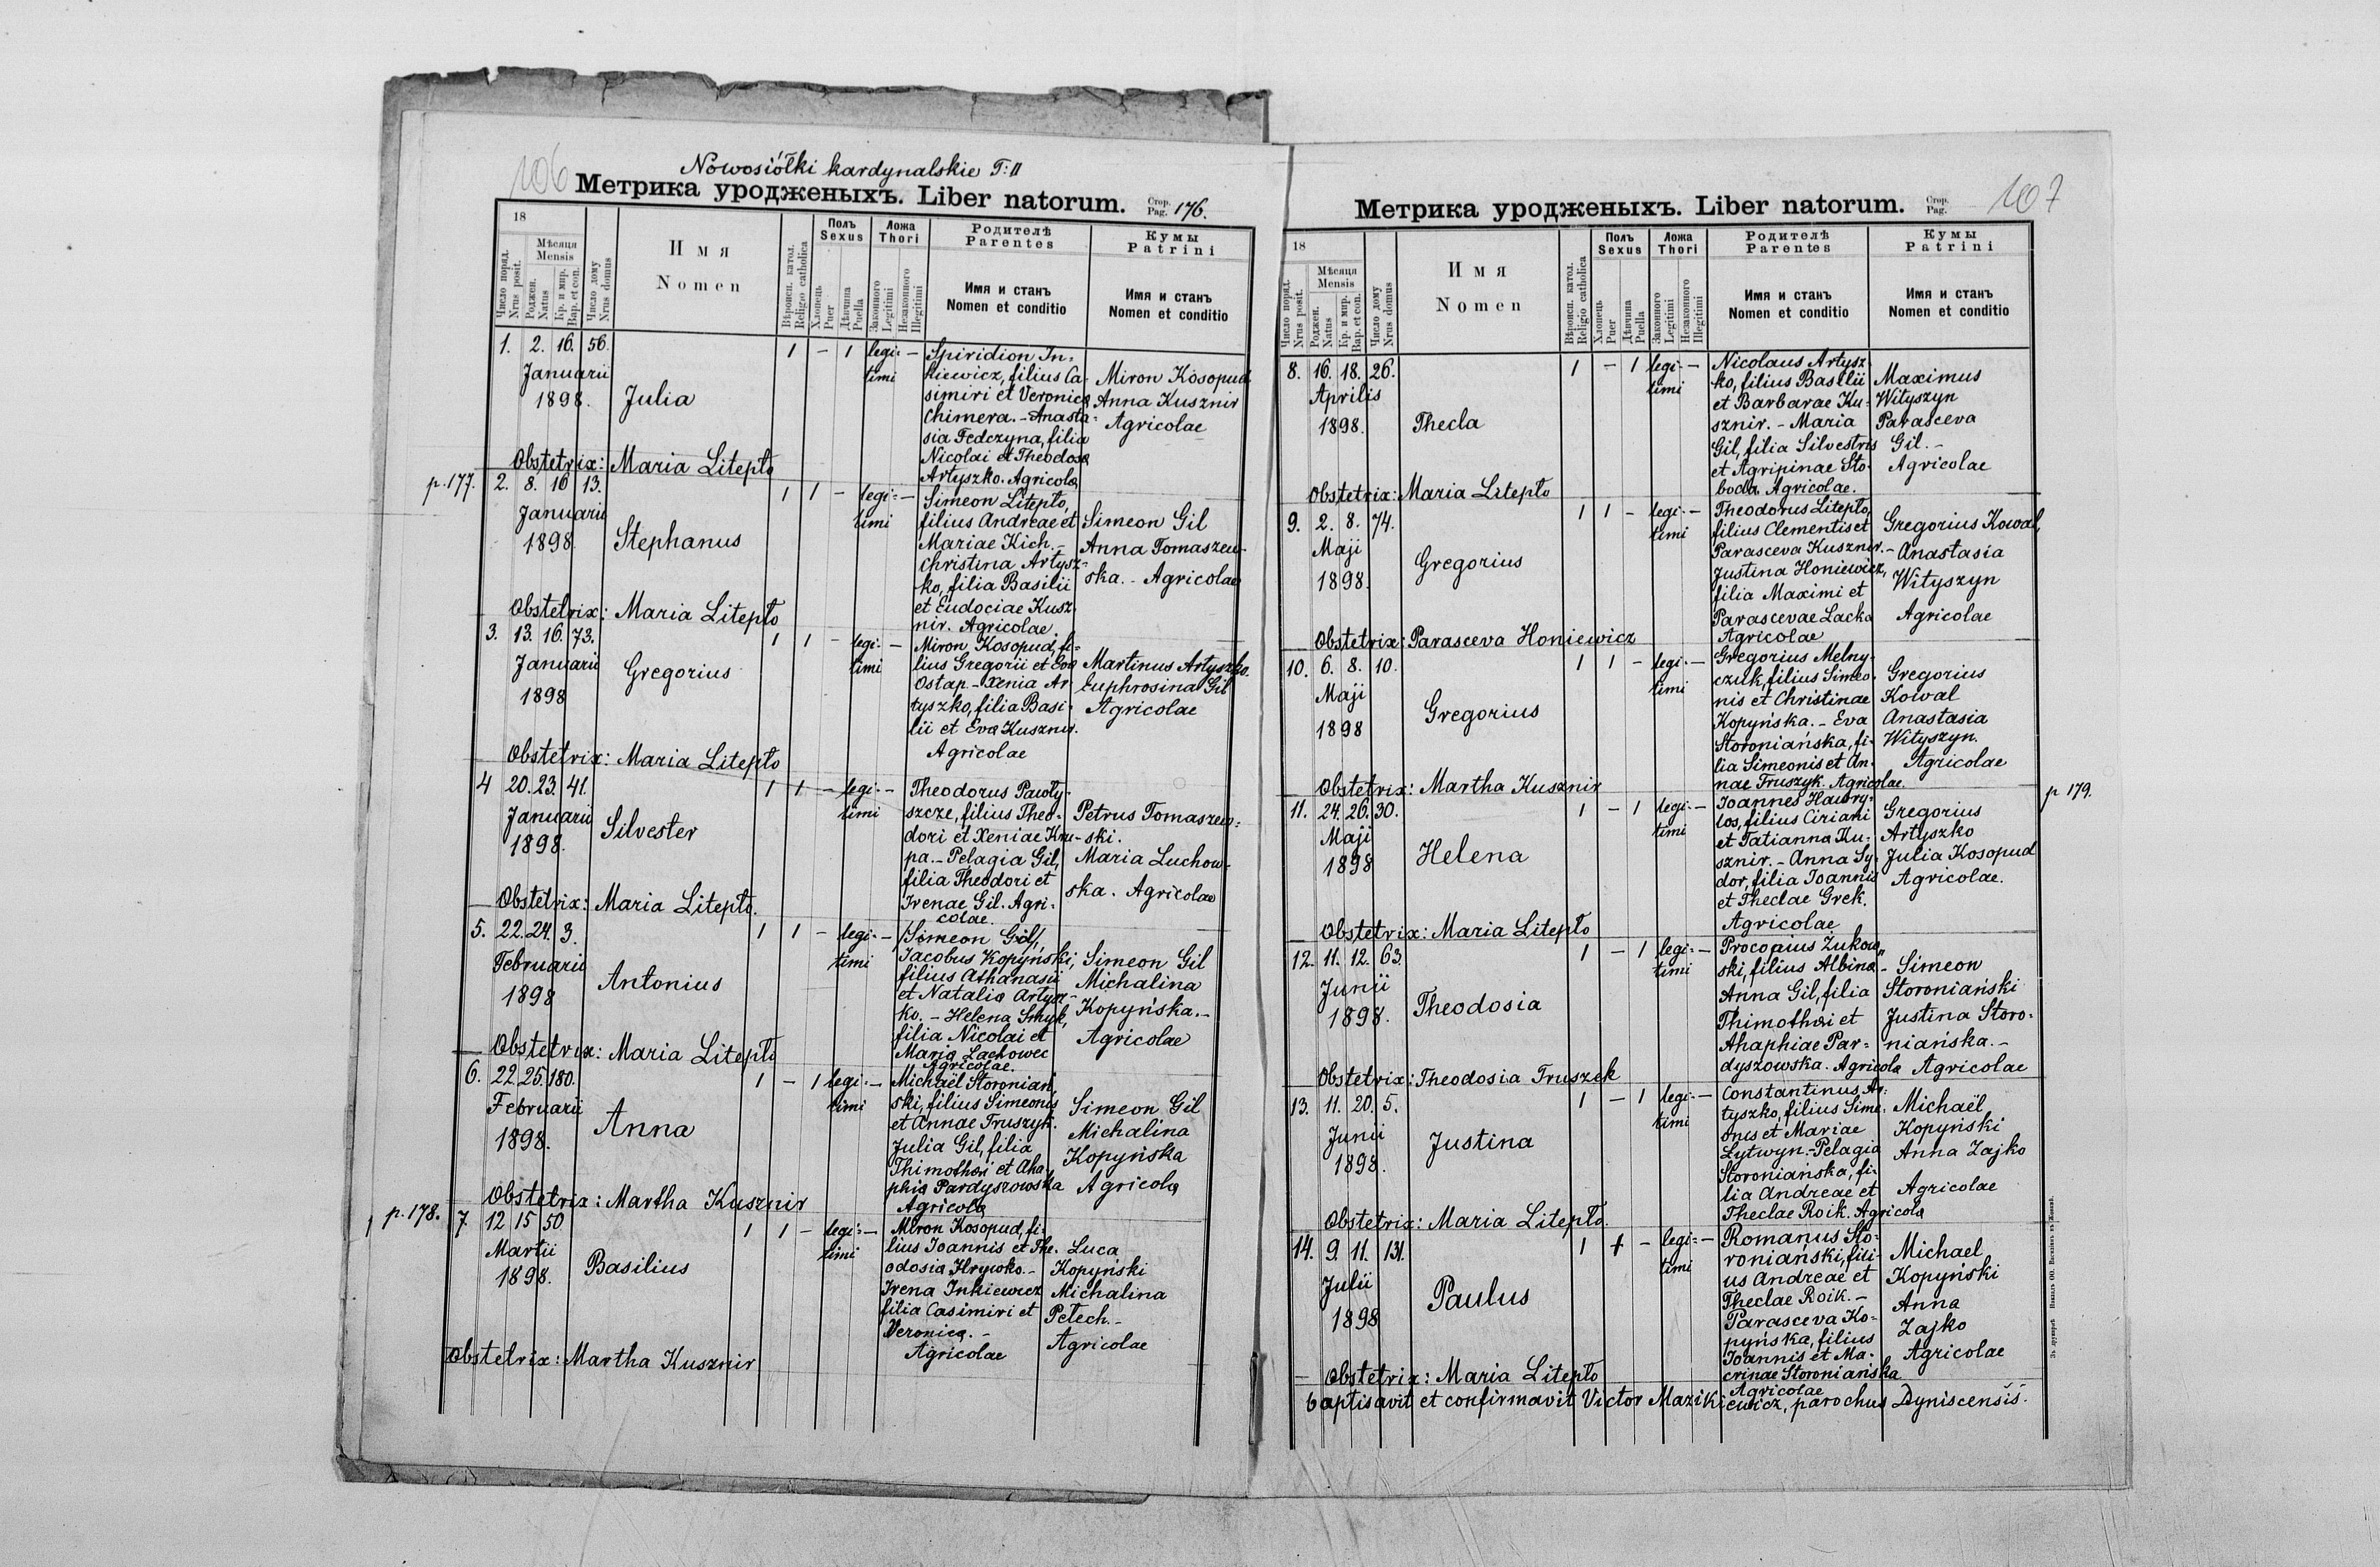 106
Nowosiółki kardynalskie T: II
Метрика уродженыхъ. Liber natorum.
Стор. Pag. 176.
18
Число поряд. Nrus posit.
Мѣсяця Mensis
Роджен. Natus
Кр. и мир. Bap. et con.
Число дому Nrus domus
Имя
Nomen
Вѣроисп. катол. Religio catholica
Полъ Sexus
Хлопець Puer
Дѣвчина Puella
Ложа Thori
Законного Legitimi
Незаконного Illegitimi
Родителѣ Parentes
Имя и станъ
Nomen et conditio
Кумы Patrini
Имя и станъ
Nomen et conditio
1. 2. 16. 56.
Januarii
1898.
Julia
1 – 1 legi= –
timi
Spiridion In=
kiewicz, filius Ca-
simiri et Veronica
Chimera. – Anasta=
sia Fedczyna, filia
Nicolai et Theodosa
Artyszko. Agricola
Miron Kosopud
Anna Kusznir
Agricolae
Obstetrix: Maria Litepło
p. 177.
2. 8. 16 13.
Januarii
1898
Stephanus
1 1 – legi= –
timi
Simeon Litepło,
filius Andreae et
Mariae Kich. –
Christina Artysz=
ko, filia Basilii
et Eudociae Kusz-
nir. Agricolae
Simeon Gil
Anna Tomaszew-
ska. – Agricolae
Obstetrix: Maria Litepło
3. 13. 16. 73.
Januarii
1898
Gregorius
1 1 – legi- –
timi
Miron Kosopud, fi-
lius Gregorii et Eva
Ostap – Xenia Ar
tyszko, filia Basi-
lii et Eva Kusznir.
Agricolae
Martinus Artyszko.
Euphrosina Gil
Agricolae
Obstetrix: Maria Litepło
4 20. 23. 41.
Januarii
1898.
Silvester
1 1 – legi- –
timi
Theodorus Pawły-
szcze, filius Theo-
dori et Xeniae Kru-
pa. – Pelagia Gil,
filia Theodori et
Irenae Gil. Agri-
colae.
Petrus Tomaszew=
ski.
Maria Luchow-
ska. Agricolae
Obstetrix: Maria Litepło.
5. 22. 24. 3.
Februarii
1898
Antonius
1 1 – legi- –
timi
Simeon Gil,
Jacobus Kopyński,
filius Athanasii
et Natalia Artysz-
ko. – Helena Smyk,
filia Nicolai et
Maria Lachowec
Agricolae.
Simeon Gil
Michalina
Kopyńska. –
Agricolae
Obstetrix: Maria Litepło
6. 22. 25. 180.
Februarii
1898.
Anna
1 – 1 legi- –
timi
Michaël Storonian
ski, filius Simeonis
et Annae Truszyk.
Julia Gil, filia
Thimothei et Aha-
phia Pardyszowska
Agricola
Simeon Gil
Michalina
Kopyńska
Agricola
Obstetrix: Martha Kusznir
p. 178.
7. 12 15 50
Martii
1898.
Basilius
1 1 – legi- –
timi
Miron Kosopud, fi-
lius Joannis et The-
odosia Hrywko. –
Irena Inkiewicz
filia Casimiri et
Veronica. –
Agricolae
Luca
Kopyński
Michalina
Petech. –
Agricolae
Obstetrix: Martha Kusznir
107
Метрика уродженыхъ. Liber natorum.
Стор. Pag.
18
Число поряд. Nrus posit.
Мѣсяця Mensis
Роджен. Natus
Кр. и мир. Bap. et con.
Число дому Nrus domus
Имя
Nomen
Вѣроисп. катол. Religio catholica
Полъ Sexus
Хлопець Puer
Дѣвчина Puella
Ложа Thori
Законного Legitimi
Незаконного Illegitimi
Родителѣ Parentes
Имя и станъ
Nomen et conditio
Кумы Patrini
Имя и станъ
Nomen et conditio
8. 16. 18. 26.
Aprilis
1898.
Thecla
1 – 1 legi- –
timi
Nicolaus Artysz
ko, filius Basilii
et Barbarae Ku-
sznir. – Maria
Gil, filia Silvestris
et Agripinae Sło-
boda. Agricolae.
Maximus
Wityszyn
Parasceva
Gil. –
Agricolae
Obstetrix: Maria Litepło
9. 2. 8. 74.
Maji
1898.
Gregorius
1 1 – legi- –
timi
Theodorus Litepło,
filius Clementis et
Parasceva Kusznir. –
Justina Honiewicz,
filia Maximi et
Parascevae Lacka
Agricolae
Gregorius Kowal,
Anastasia
Wityszyn
Agricolae
Obstetrix: Parasceva Honiewicz
10. 6. 8. 10.
Maji
1898
Gregorius
1 1 – legi- –
timi
Gregorius Melny-
czuk, filius Simeo-
nis et Christinae
Kopyńska. – Eva
Storoniańska, fi-
lia Simeonis et An-
nae Truszyk. Agricolae.
Gregorius
Kowal
Anastasia
Wityszyn.
Agricolae
Obstetrix: Martha Kusznir
p 179.
11. 24. 26. 30.
Maji
1898
Helena
1 – 1 legi- –
timi
Joannes Hawry-
los, filius Ciriani
et Tatianna Ku-
sznir. – Anna Sy-
dor, filia Joannis
et Theclae Grek.
Agricolae
Gregorius
Artyszko
Julia Kosopud
Agricolae.
Obstetrix: Maria Litepło
12. 11. 12. 63.
Junii
1898.
Theodosia
1 – 1 legi- –
timi
Procopius Żukow
ski, filius Albina –
Anna Gil, filia
Thimothei et
Ahaphiae Par=
dyszowska. Agricola
Simeon
Storoniański
Justina Storo-
niańska. –
Agricolae
Obstetrix: Theodosia Truszek
13. 11. 20. 5.
Junii
1898.
Justina
1 – 1 legi- –
timi
Constantinus Ar-
tyszko, filius Sime-
onis et Mariae
Lytwyn. – Pelagia
Storoniańska, fi-
lia Andreae et
Theclae Roik. Agricola
Michaël
Kopyński
Anna Zajko
Agricolae
Obstetrix: Maria Litepło.
14. 9. 11. 131.
Julii
1898
Paulus
1 1 – legi- –
timi
Romanus Sto-
roniański, fili-
us Andreae et
Theclae Roik. –
Parasceva Ko-
pyńska, filius
Joannis et Ma-
crinae Storoniańska
Agricolae
Michael
Kopyński
Anna
Zajko
Agricolae
Obstetrix: Maria Litepło
baptisavit et confirmavit Victor Mazikiewicz, parochus Dyniscensis.